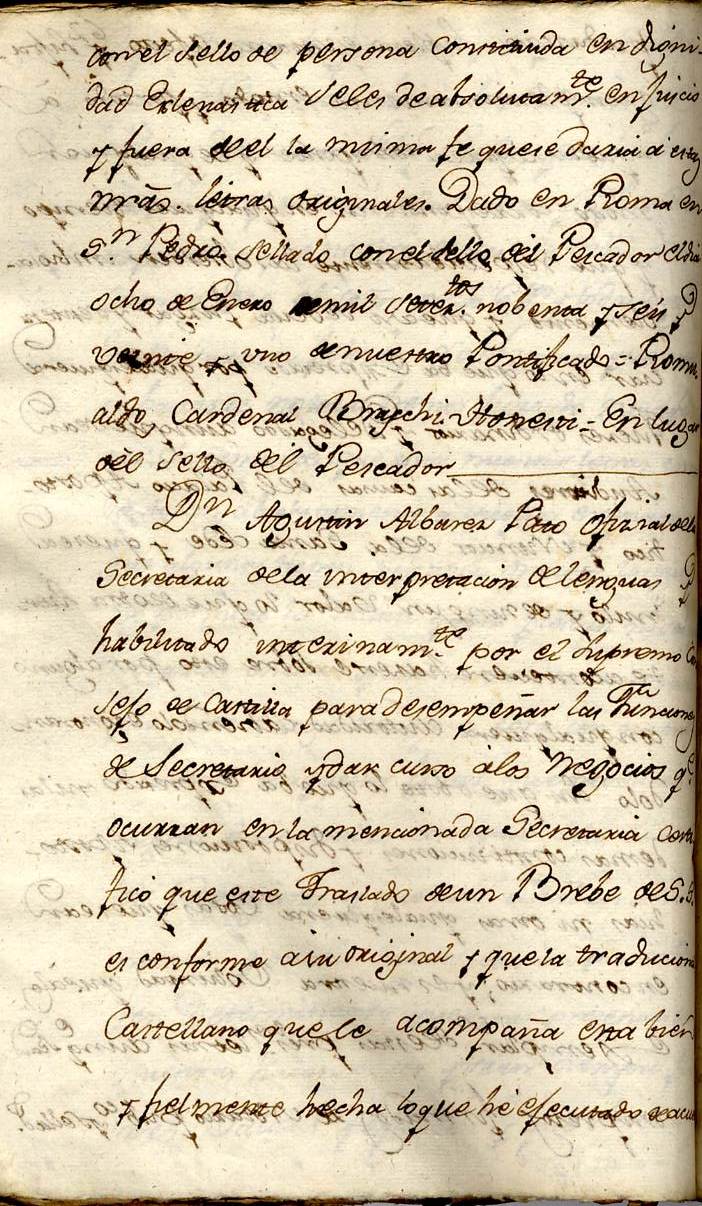 con el sello de persona constituida en digni-
dad Eclesiastica se les de absolutam.te en juicio
y fuera de el la misma fe que se daria à estas
nrãs. letras originales. Dado en Roma en
S.n Pedro Sellado con el sello del Pescador el dia
ocho de Enero de mil setez.tos nobenta y seis
veinte y uno de nuestro Pontificado = Romu-
aldo, Cardenal Braschi Honesti = En lugar
del Sello del Pescador
D.n Agustin Albarez Pato ofizial de la
Secretaria de la interpretacion de lenguas
habilitado interinam.te por el Supremo Con
sejo de Castilla para desempeñar las Funciones
de Secretario y dar curso à los Negocios q.e
ocurran en la mencionada Secretaria Certi
fico que este Traslado de un Brebe de S.S.
es conforme a su original y que la traducion
Castellano que le acompaña esta bien
y fielmente hecha lo que hè ejecutado de acu